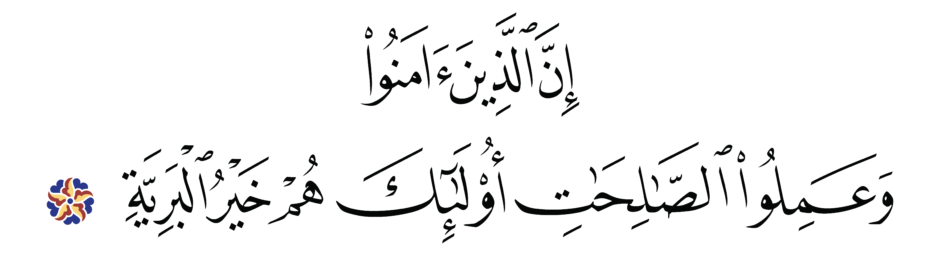 إِنَّ ٱلَّذِينَ ءَامَنُوا۟
وَعَمِلُوا۟ ٱلصَّـٰلِحَـٰتِ أُو۟لَـٰٓئِكَ هُمْ خَيْرُ ٱلْبَرِيَّةِ